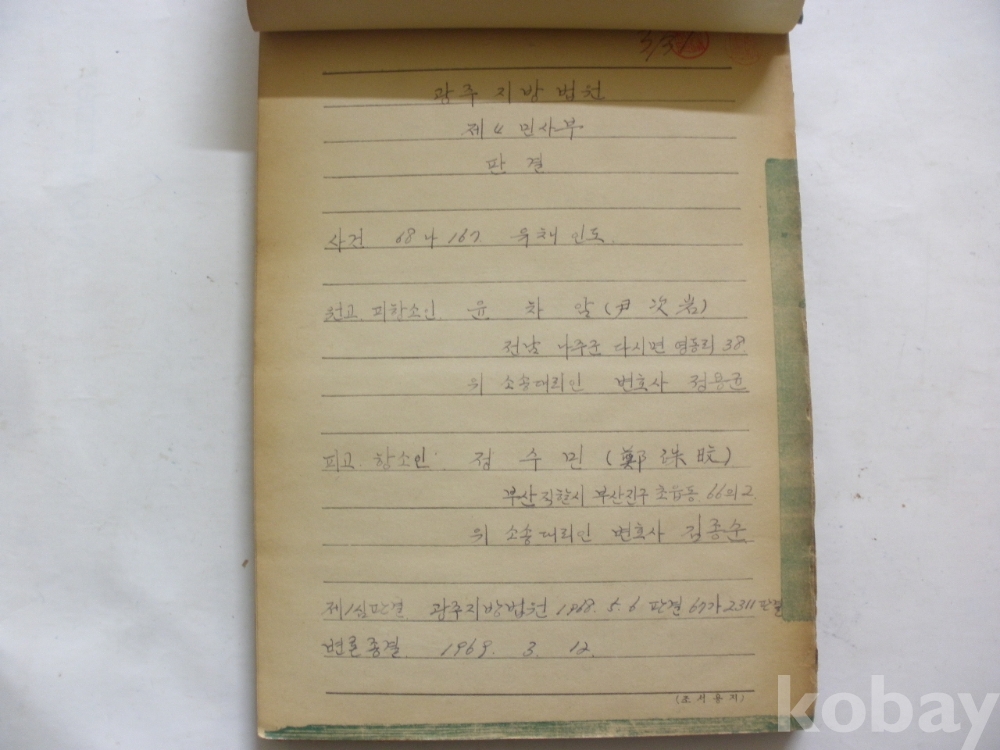 3/31
광주지방법원
제4민사부
판결
사건 68나 167. 유체인도.
원고. 피항소인. 윤차암 (尹次岩)
전남 나주군 다시면 영동리 38.
위 소송대리인 변호사 정용균
피고. 항소인. 정수민 (鄭洙旼)
부산직할시 부산진구 초읍동 66의 2.
위 소송대리인 변호사 김종순
제1심판결 광주지방법원 1968. 5. 6 판결 67가2311 판결
변론종결 1969. 3. 12.
(조서용지)
kobay